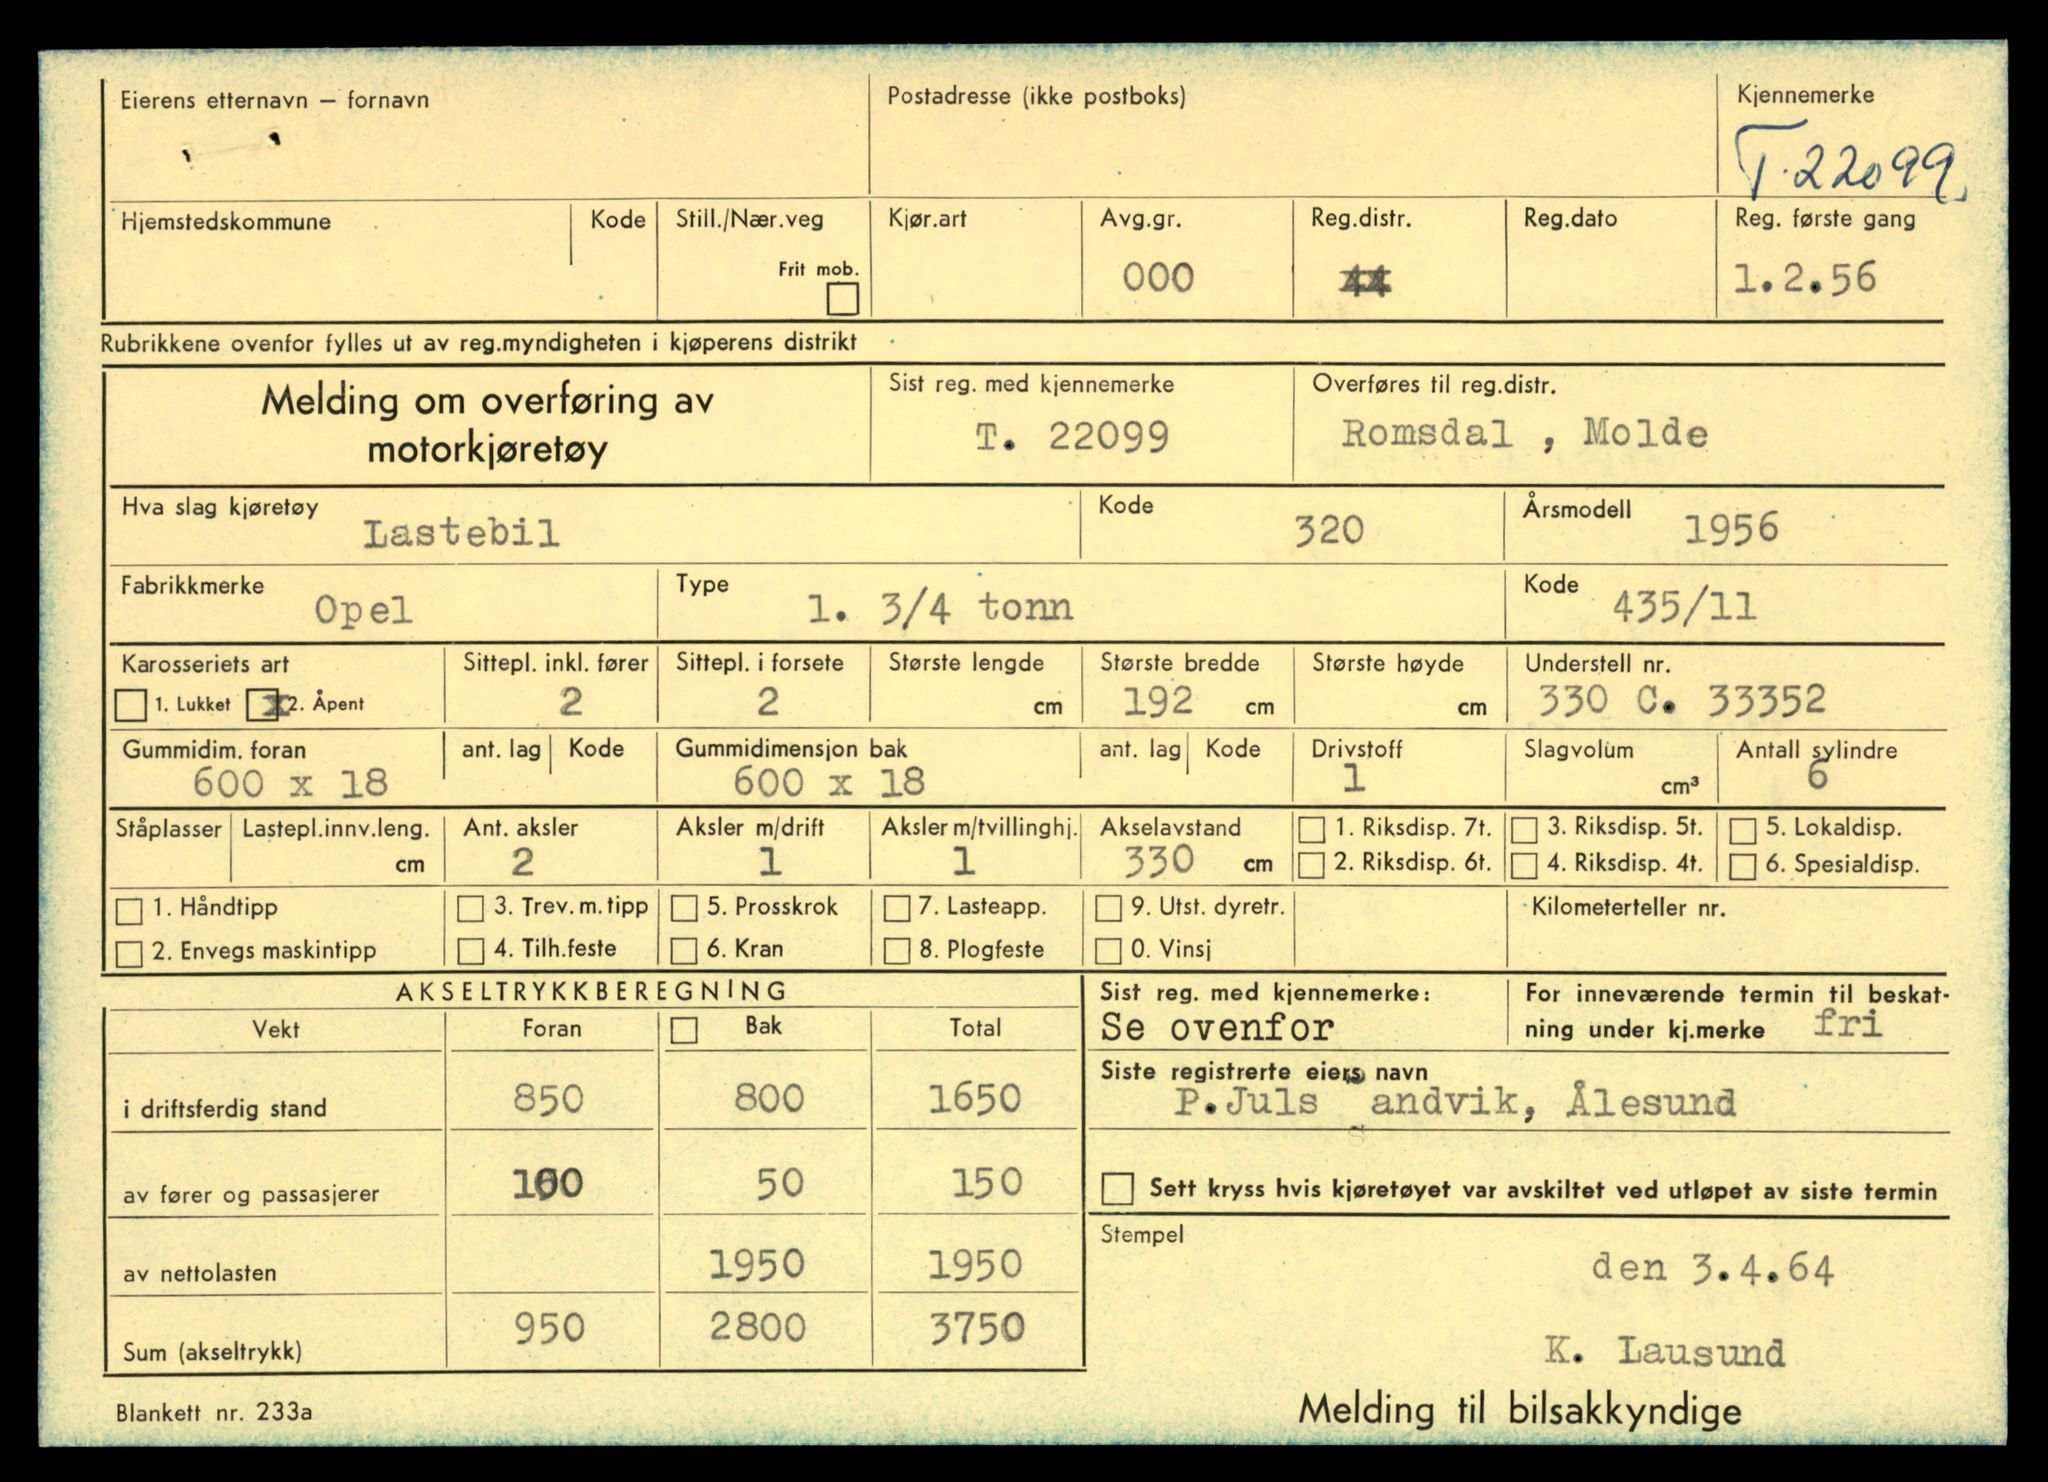 Eierens etternavn – fornavn
Postadresse (ikke postboks)
Kjennemerke
T. 22099
Hjemstedskommune
Kode
Still./Nær.veg
Frit mob.
Kjør.art
Avg.gr.
000
Reg.distr.
Reg.dato
Reg. første gang
1.2.56
Rubrikkene ovenfor fylles ut av reg.myndigheten i kjøperens distrikt
Melding om overføring av
motorkjøretøy
Sist reg. med kjennemerke
T. 22099
Overføres til reg.distr.
Romsdal , Molde
Hva slag kjøretøy
Lastebil
Kode
320
Årsmodell
1956
Fabrikkmerke
Opel
Type
1. 3/4 tonn
Kode
435/11
Karosseriets art
1. Lukket x 2. Åpent
Sittepl. inkl. fører
2
Sittepl. i forsete
2
Største lengde
cm
Største bredde
192 cm
Største høyde
cm
Understell nr.
330 C. 33352
Gummidim. foran
600 x 18
ant. lag
Kode
Gummidimensjon bak
600 x 18
ant. lag
Kode
Drivstoff
1
Slagvolum
cm³
Antall sylindre
6
Ståplasser
Lastepl.innv.leng.
cm
Ant. aksler
2
Aksler m/drift
1
Aksler m/tvillinghj.
1
Akselavstand
330 cm
1. Riksdisp. 7t.
2. Riksdisp. 6t.
3. Riksdisp. 5t.
4. Riksdisp. 4t.
5. Lokaldisp.
6. Spesialdisp.
1. Håndtipp
2. Envegs maskintipp
3. Trev. m. tipp
4. Tilh.feste
5. Prosskrok
6. Kran
7. Lasteapp.
8. Plogfeste
9. Utst. dyretr.
0. Vinsj
Kilometerteller nr.
AKSELTRYKKBEREGNING
Vekt Foran Bak Total
i driftsferdig stand 850 800 1650
av fører og passasjerer 100 50 150
av nettolasten 1950 1950
Sum (akseltrykk) 950 2800 3750
Sist reg. med kjennemerke:
Se ovenfor
For inneværende termin til beskat-
ning under kj.merke fri
Siste registrerte eiers navn
P.Juls andvik, Ålesund
s
Sett kryss hvis kjøretøyet var avskiltet ved utløpet av siste termin
Stempel
den 3.4.64
K. Lausund
Blankett nr. 233a
Melding til bilsakkyndige